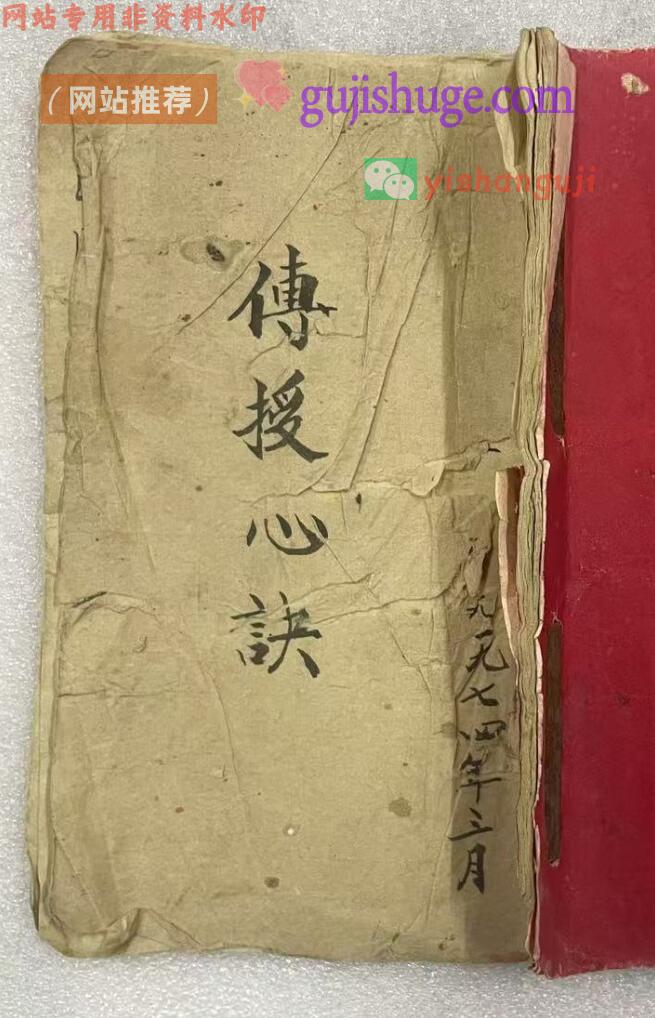 网站专用非资料水印
（网站推荐）
gujishuge.com
yishanguji
傳授心訣
九七四年三月